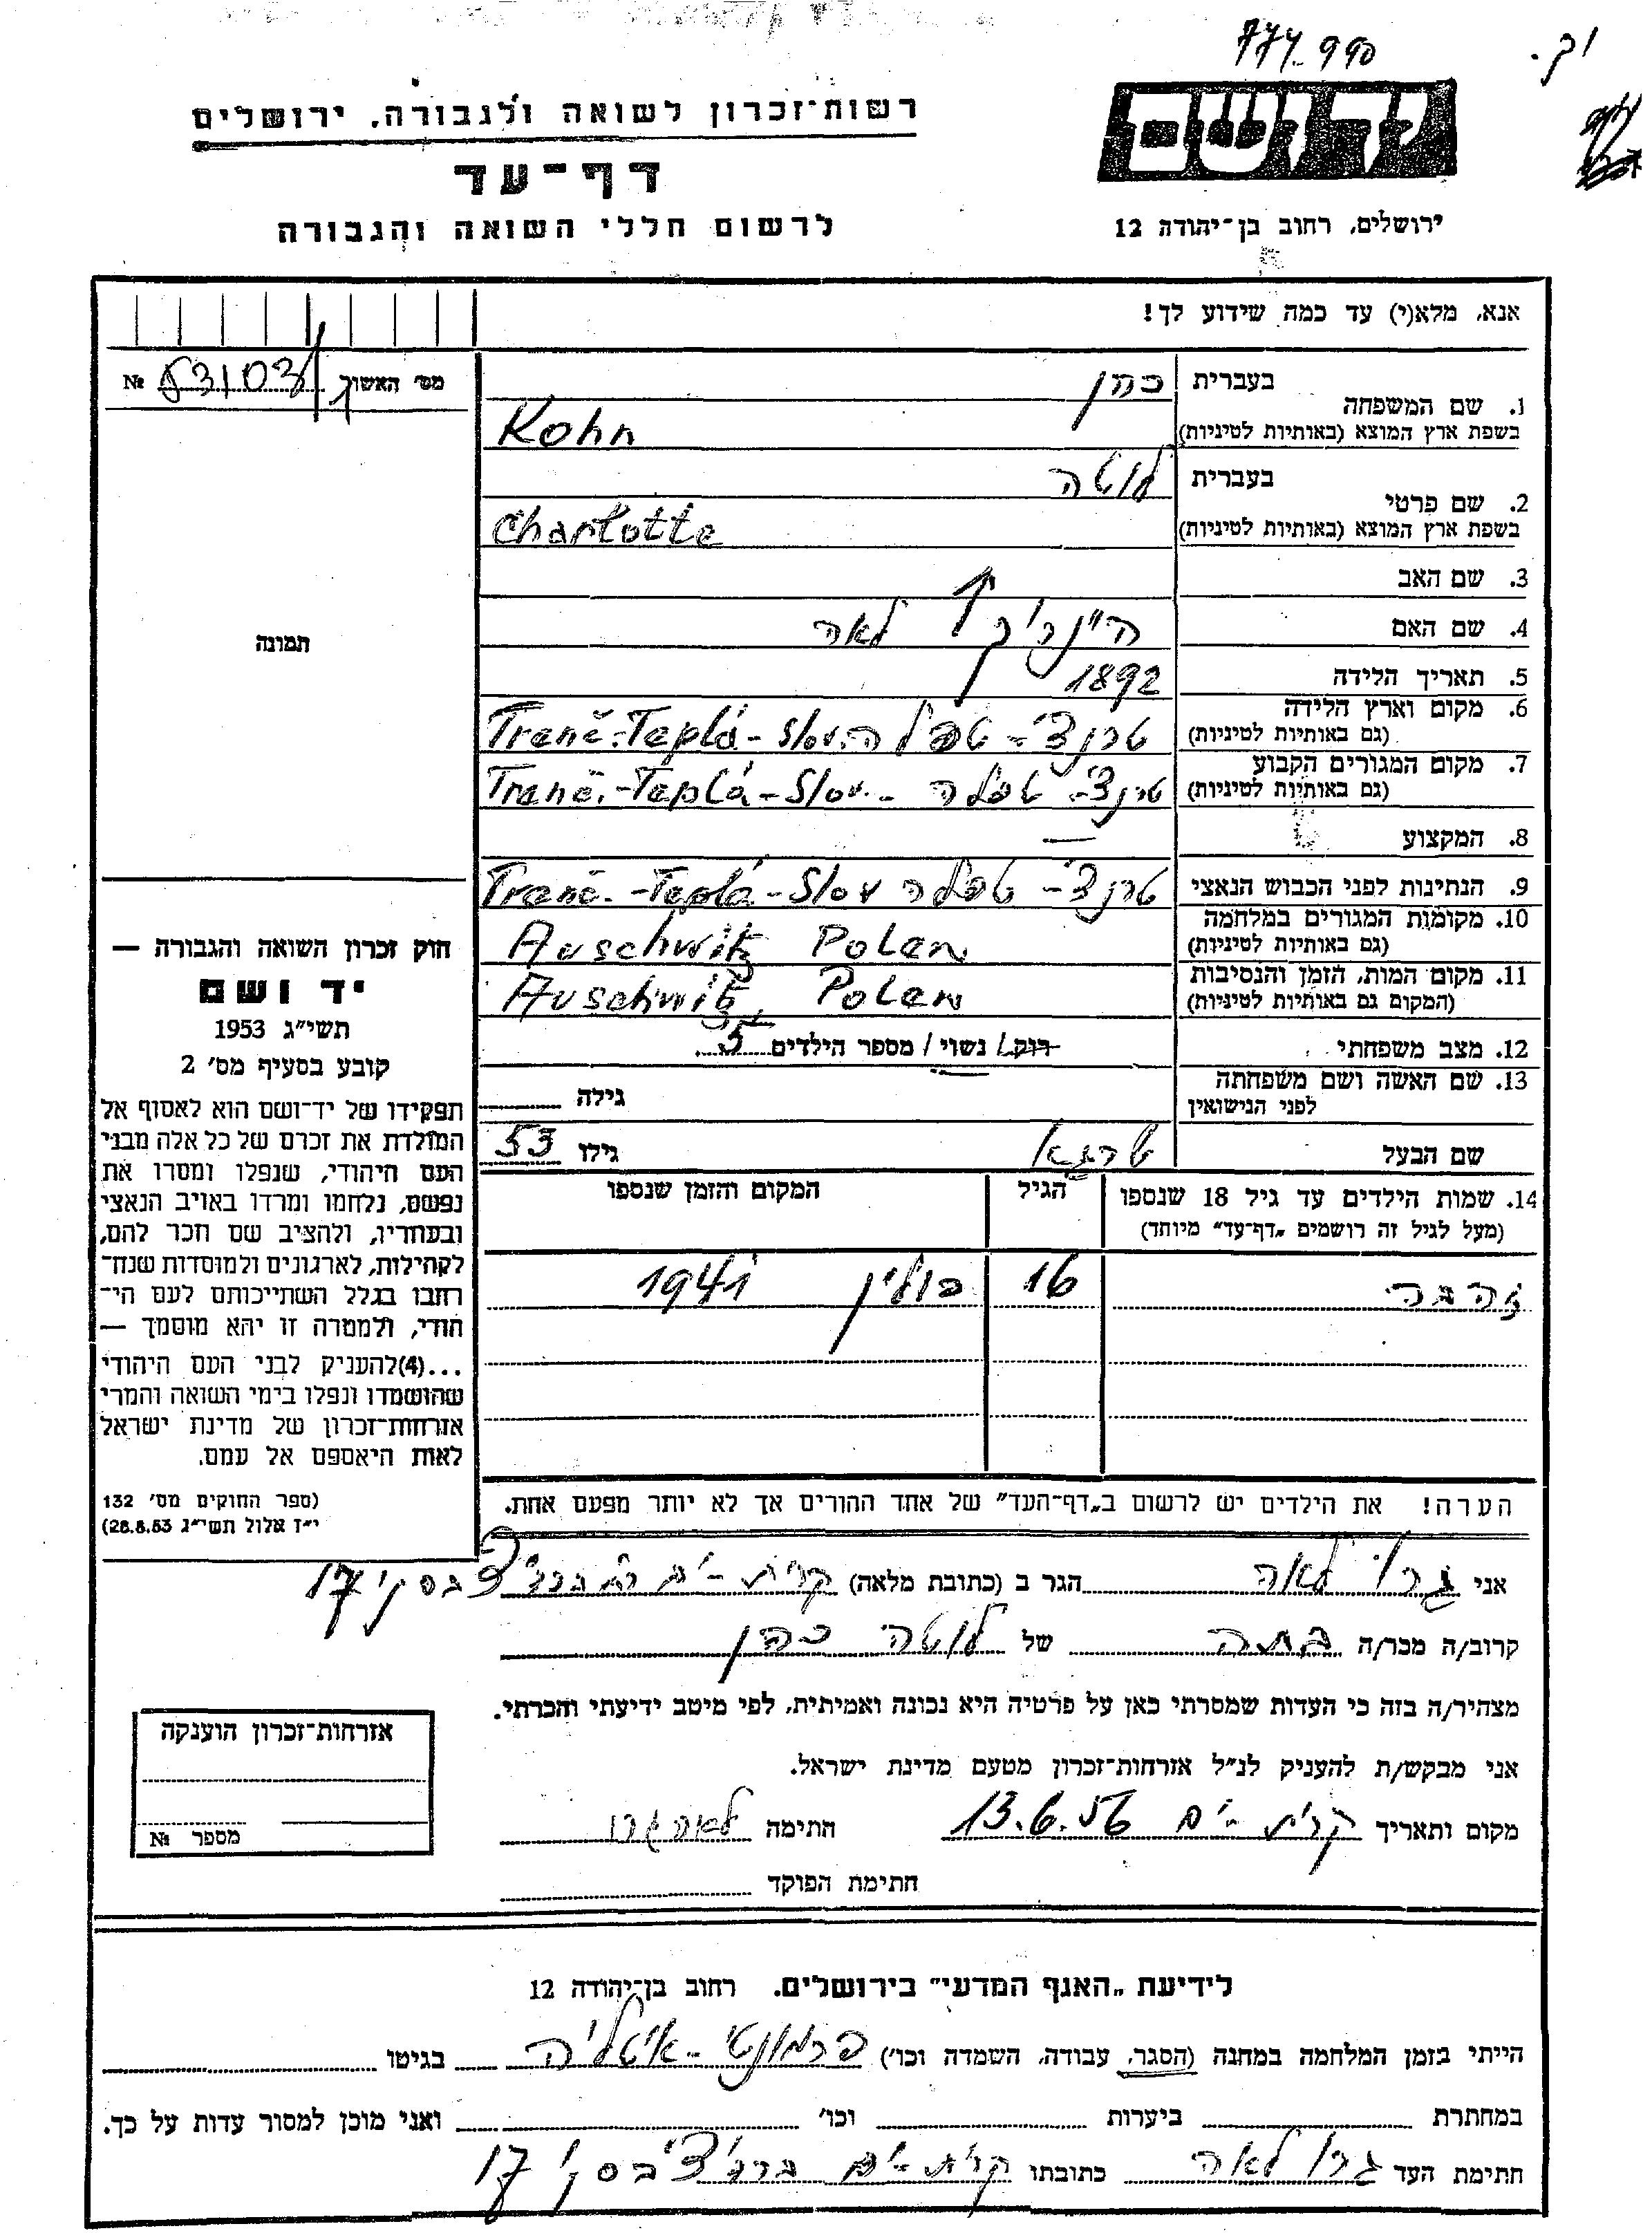 774 990
רשות־זכרון לשואה ולגבורה, ירושלים
ידושם
דף־עד
לרשום חללי השואה והגבורה
ירושלים, רחוב בן־יהודה 12
אנא, מלא(י) עד כמה שידוע לך!
מס׳ האשוך № 53103
תמונה
1. שם המשפחה בעברית כהן
בשפת ארץ המוצא (באותיות לטיניות) Kohn
2. שם פרטי בעברית לוטה
בשפת ארץ המוצא (באותיות לטיניות) Charlotte
3. שם האב
4. שם האם היינריך לאה
5. תאריך הלידה 1892
6. מקום וארץ הלידה (גם באותיות לטיניות) טרנצ׳־טפלה Trenč.-Teplá-Slov.
7. מקום המגורים הקבוע (גם באותיות לטיניות) טרנצ׳־טפלה Trenč.-Teplá-Slov.
8. המקצוע —
9. הנתינות לפני הכבוש הנאצי טרנצ׳־טפלה Trenč.-Teplá-Slov
10. מקומות המגורים במלחמה (גם באותיות לטיניות) Auschwitz Polen
11. מקום המות, הזמן והנסיבות (המקום גם באותיות לטיניות) Auschwitz, Polen
12. מצב משפחתי רוק/ נשוי / מספר הילדים 5
13. שם האשה ושם משפחתה לפני הנישואין גילה
שם הבעל גילו 53
14. שמות הילדים עד גיל 18 שנספו הגיל המקום והזמן שנספו
(מעל לגיל זה רושמים „דף־עד״ מיוחד)
זהבה 16 פולין 1941
הערה! את הילדים יש לרשום ב„דף־העד״ של אחד ההורים אך לא יותר מפעם אחת.
חוק זכרון השואה והגבורה —
יד ושם
תשי״ג 1953
קובע בסעיף מס׳ 2
תפקידו של יד־ושם הוא לאסוף אל
המולדת את זכרם של כל אלה מבני
העם היהודי, שנפלו ומסרו את
נפשם, נלחמו ומרדו באויב הנאצי
ובעוזריו, ולהציב שם וזכר להם,
לקהילות, לארגונים ולמוסדות שנח־
רבו בגלל השתייכותם לעם הי־
הודי, ולמטרה זו יהא מוסמך —
...(4)להעניק לבני העם היהודי
שהושמדו ונפלו בימי השואה והמרי
אזרחות־זכרון של מדינת ישראל
לאות היאספם אל עמם.
(ספר החוקים מס׳ 132
י״ז אלול תשי״ג 28.8.53)
אני גרו לאה הגר ב (כתובת מלאה) קרית־ים 17
קרוב/ה מכר/ה בתה של לוטה כהן
מצהיר/ה בזה כי העדות שמסרתי כאן על פרטיה היא נכונה ואמיתית, לפי מיטב ידיעתי והכרתי.
אני מבקש/ת להעניק לנ״ל אזרחות־זכרון מטעם מדינת ישראל.
מקום ותאריך קרית־ים 13.6.56 חתימה לאה גרו
חתימת הפוקד
אזרחות־זכרון הוענקה
מספר №
לידיעת „האגף המדעי״ בירושלים. רחוב בן־יהודה 12
הייתי בזמן המלחמה במחנה (הסגר, עבודה, השמדה וכו׳) פרמונטי־איטליה בגיטו
במחתרת ביערות וכו׳ ואני מוכן למסור עדות על כך.
חתימת העד גרו לאה כתובתו קרית־ים 17